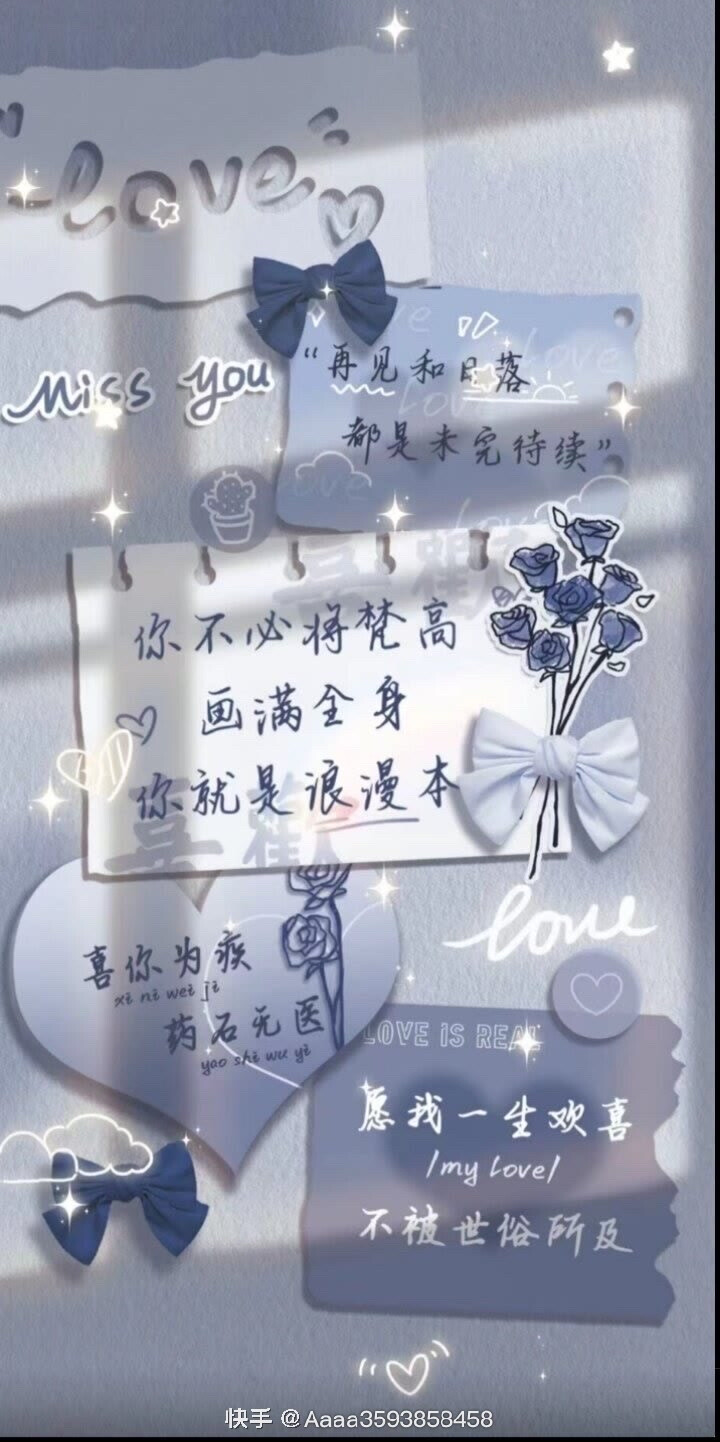 Love
Miss you
“再见和日落
都是未完待续”
你不必将梵高
画满全身
你就是浪漫本
喜你为疾
xǐ nǐ wéi jí
药石无医
yào shí wú yī
love
LOVE iS REAL
愿我一生欢喜
/my Love/
不被世俗所及
快手 @Aaaa3593858458